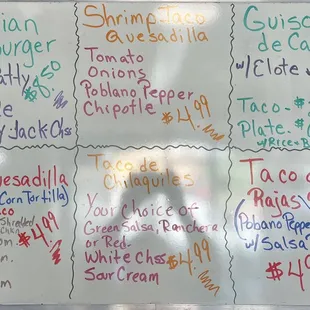 ian
burger
atty
$8.50
Jack Chss
Shrimp Taco
Quesadilla
Tomato
Onions
Poblano Pepper
Chipotle
$4.99
Guiso
de Ca
w/Elote
Taco - $
Plate -
w/Rice &
esadilla
Corn Tortilla)
$4.99
Taco de
Chilaquiles
Your Choice of
Green Salsa, Ranchera
or Red.
White Chss
Sour Cream
$4.99
Taco d
Rajas
(Pobano Peppe
w/Salsa
$4